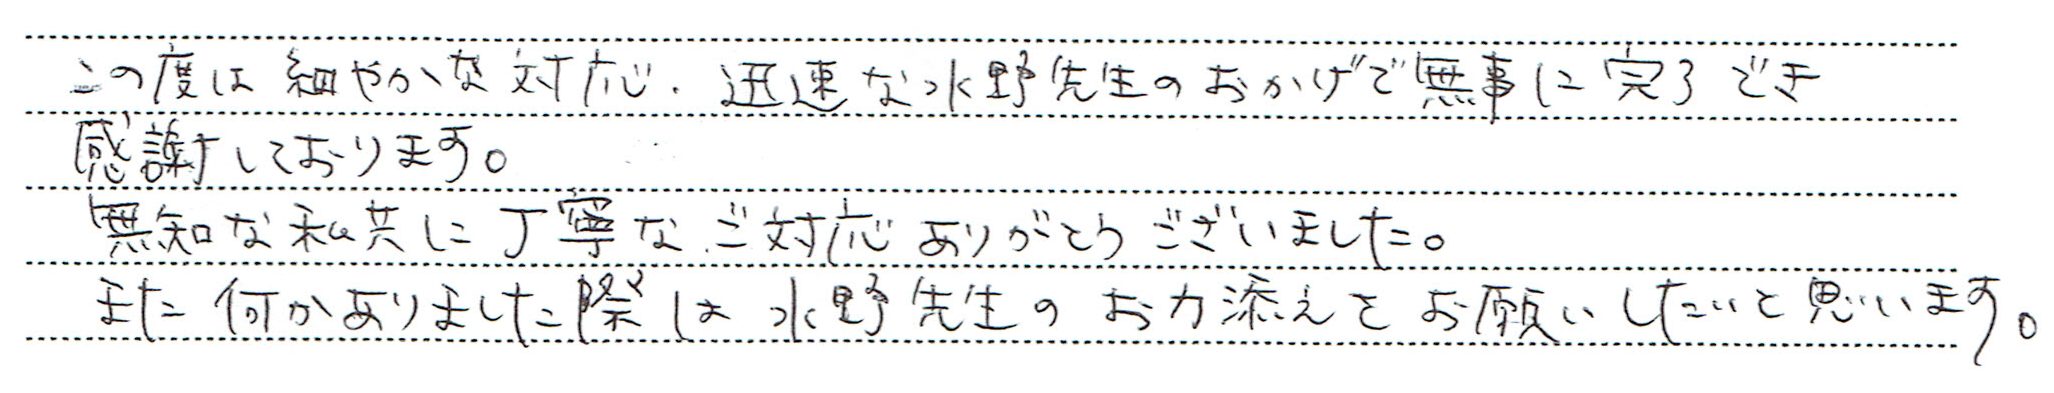 この度は細やかな対応、迅速な水野先生のおかげで無事に完了でき
感謝しております。
無知な私共に丁寧なご対応ありがとうございました。
また何かありました際は水野先生のお力添えをお願いしたいと思います。